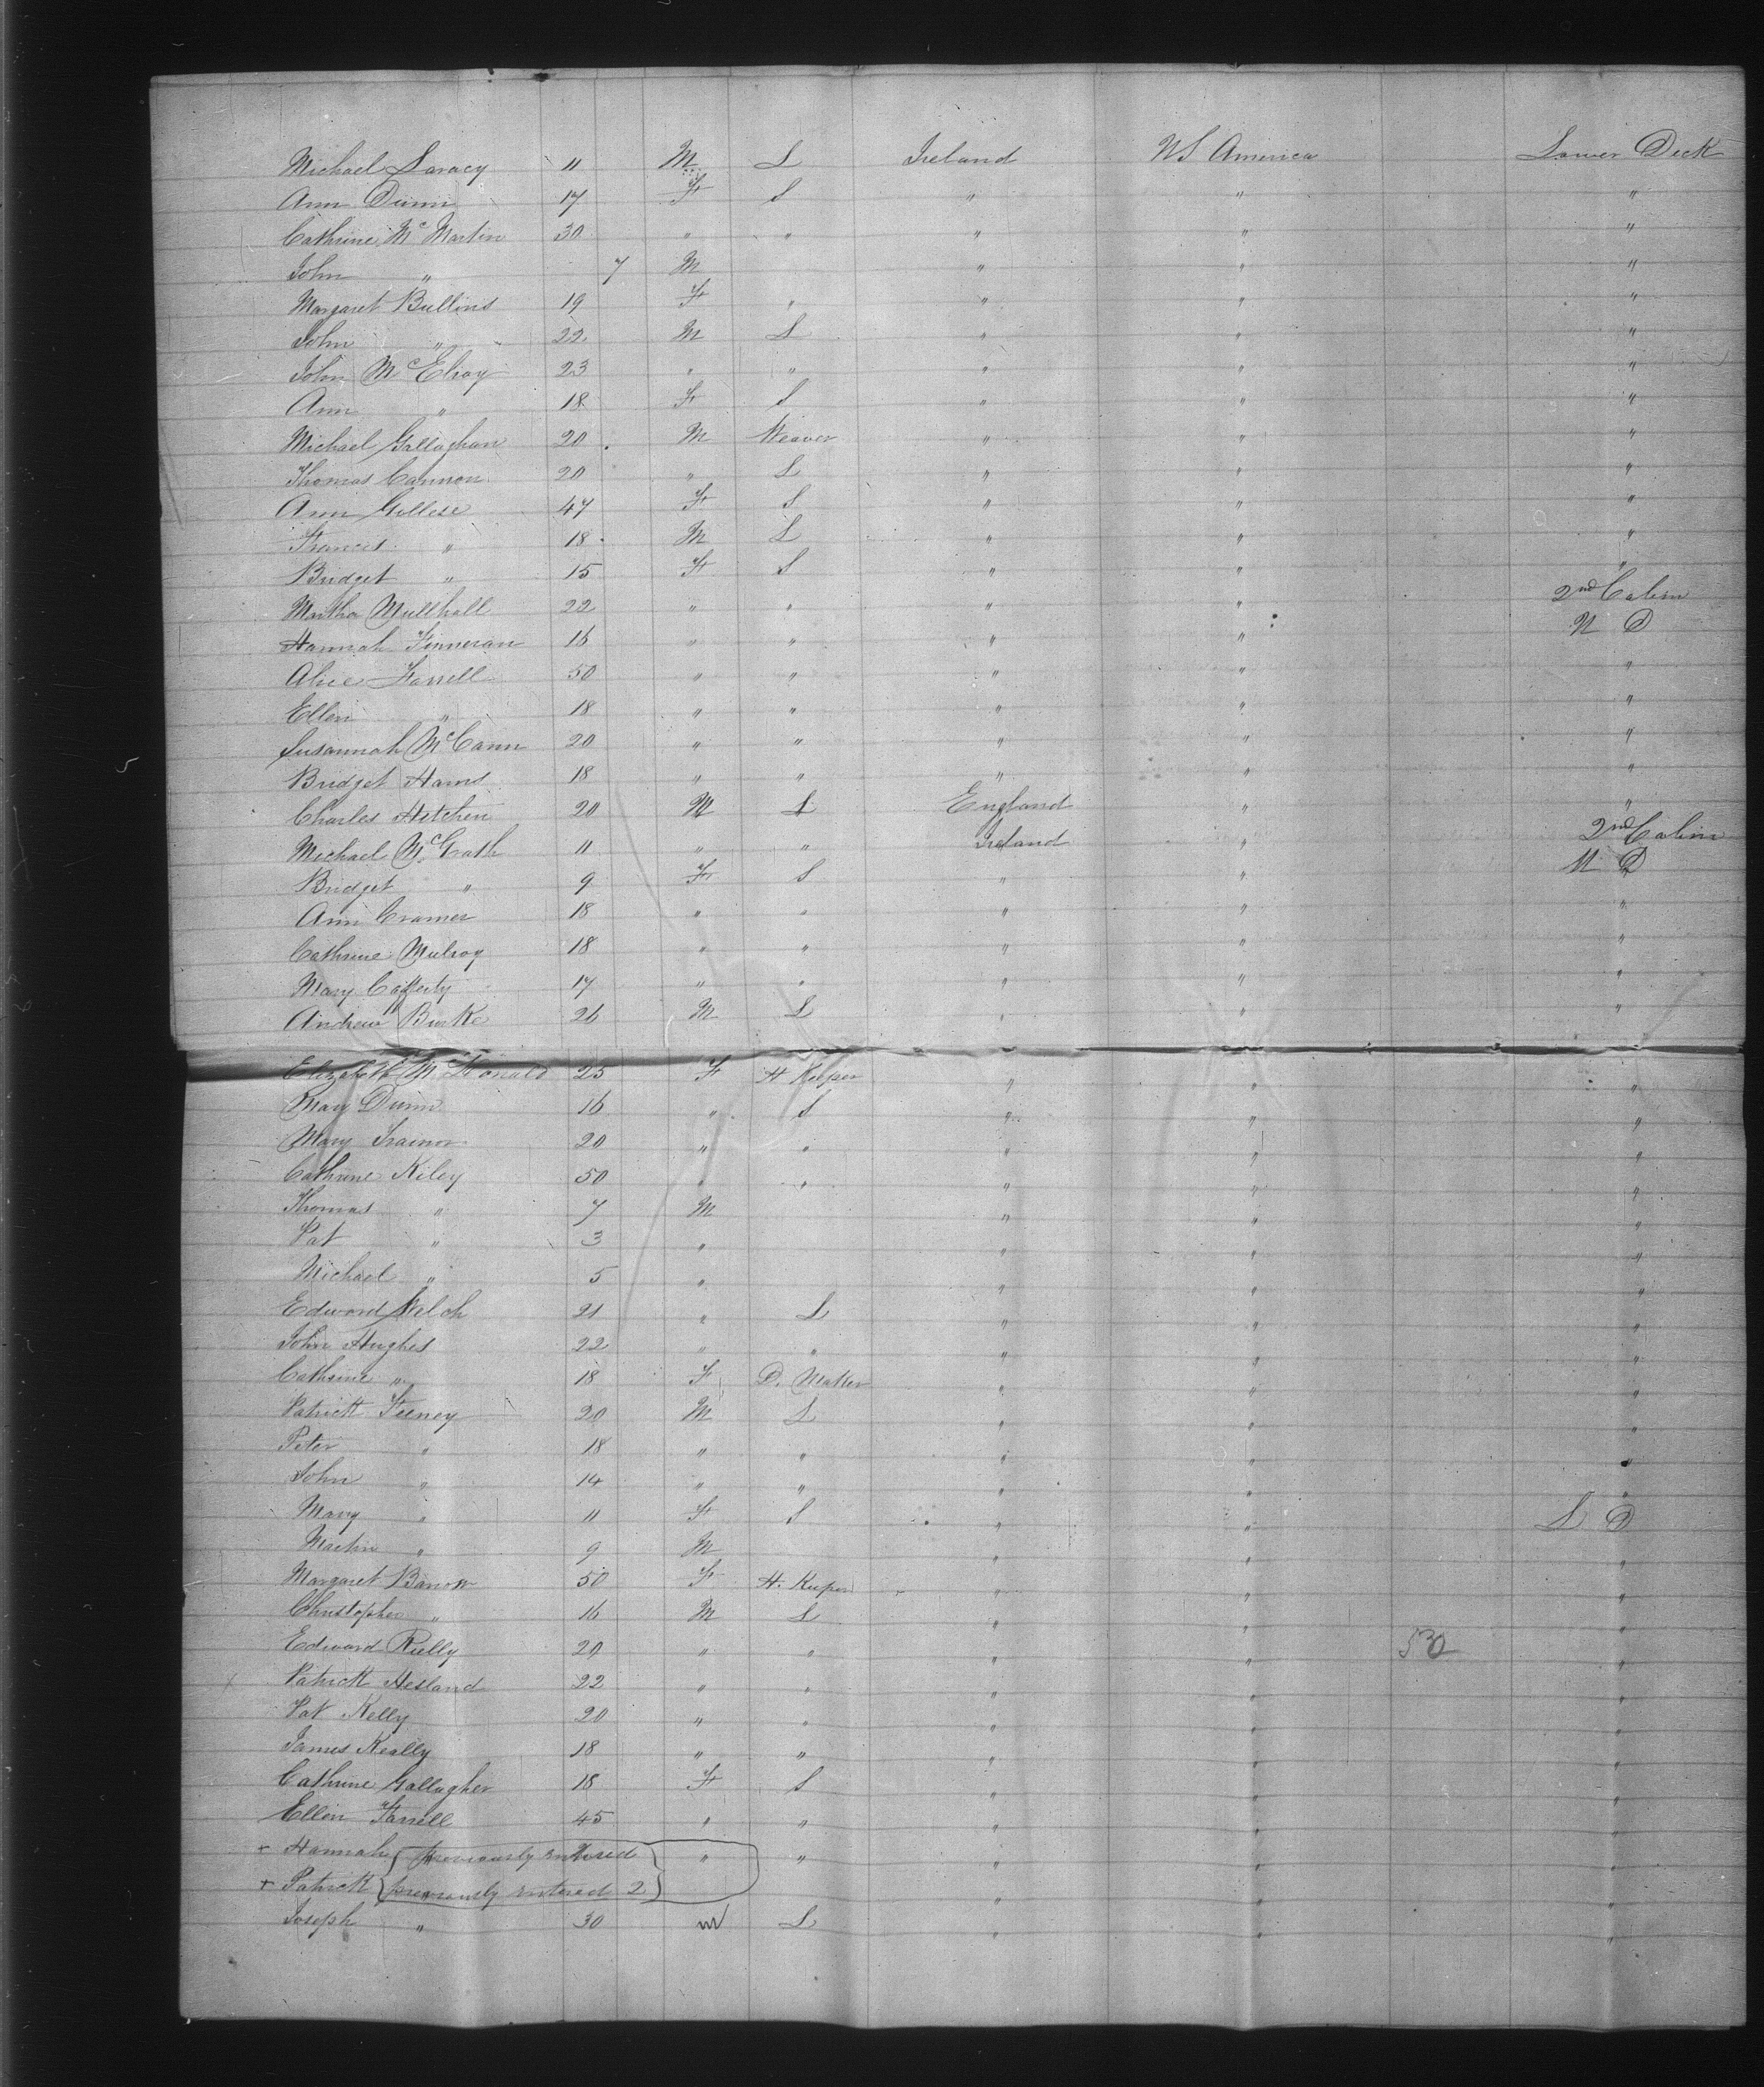 Michael Laracy 11 M L Ireland US America Lower Deck
Ann Dunn 17 F S " " "
Cathrine McMartin 30 " " " " "
John " 7 M " " "
Margaret Bullins 19 F " " " "
John " 22 M L " " "
John McElroy 23 " " " " "
Ann " 18 F S " " "
Michael Gallaghan 20 M Weaver " " "
Thomas Cannon 20 " L " " "
Ann Gillese 47 F S " " "
Frances " 18 M L " " "
Bridget " 15 F S " " "
Martha Mullhall 22 " " " " 2nd Cabin
Hannah Finneran 16 " " " " U D
Alice Farrell 50 " " " " "
Ellen " 18 " " " " "
Susannah McCann 20 " " " " "
Bridget Hams 18 " " " " "
Charles Hitchen 20 M L England " "
Michael McGrath 11 " " Ireland " 2nd Cabin
Bridget " 9 F S " " U D
Ann Cramer 18 " " " " "
Cathrine Mulroy 18 " " " " "
Mary Cafferty 17 " " " " "
Andrew Burke 26 M L " " "
Elizabeth McDonald 25 F H Keeper " " "
Mary Dunn 16 " S " " "
Mary Trainor 20 " " " " "
Cathrine Kiley 50 " " " " "
Thomas " 7 M " " "
Pat " 3 " " " "
Michael " 5 " " " "
Edward Welch 21 " L " " "
John Hughes 22 " " " " "
Cathrine " 18 F D. Maker " " "
Patrick Feeney 20 M L " " "
Peter " 18 " " " " "
John " 14 " " " " "
Mary " 11 F S " " L D
Martin " 9 M " " "
Margaret Barrow 50 F H. Keeper " " "
Christopher " 16 M L " " "
Edward Rielly 20 " " " " 530 "
Patrick Hesland 22 " " " " "
Pat Kelly 20 " " " " "
James Keally 18 " " " " "
Cathrine Gallagher 18 F S " " "
Ellen Farrell 45 " " " " "
+ Hannah previously entered " " " " "
+ Patrick previously entered 2 " " "
Joseph " 30 M L " " "